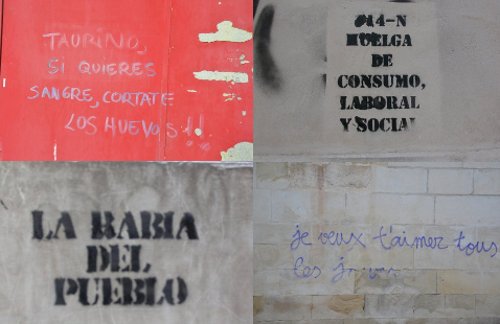 TAURINO,
SI QUIERES
SANGRE, CORTATE
LOS HUEVOS!!
14-N
HUELGA
DE
CONSUMO,
LABORAL
Y SOCIAL
LA RABIA
DEL
PUEBLO
je veux t'aimer tous
les